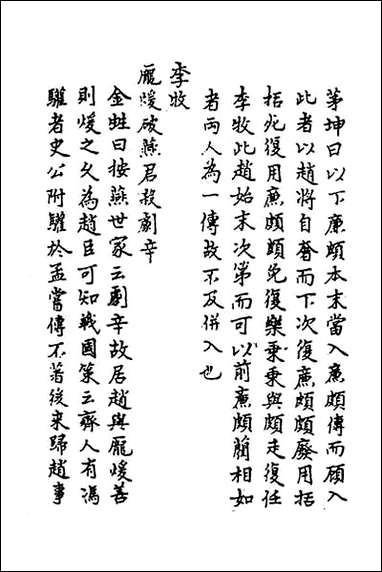 茅坤曰以下廉頗本末當入廉頗傳而顧入
此者以趙將自奢而下次復廉頗頗廢用括
括死復用廉頗頗免復樂乗乗與頗走復任
李牧此趙始末次第而可以前廉頗藺相如
者兩人為一傳故不及併入也
李牧
龐煖破燕君殺劇辛
金蛙曰按燕世家云劇辛故居趙與龐煖善
則煖之久為趙臣可知戰國策云齊人有馮
驩者史公附驩於孟嘗傳不著後来歸趙事